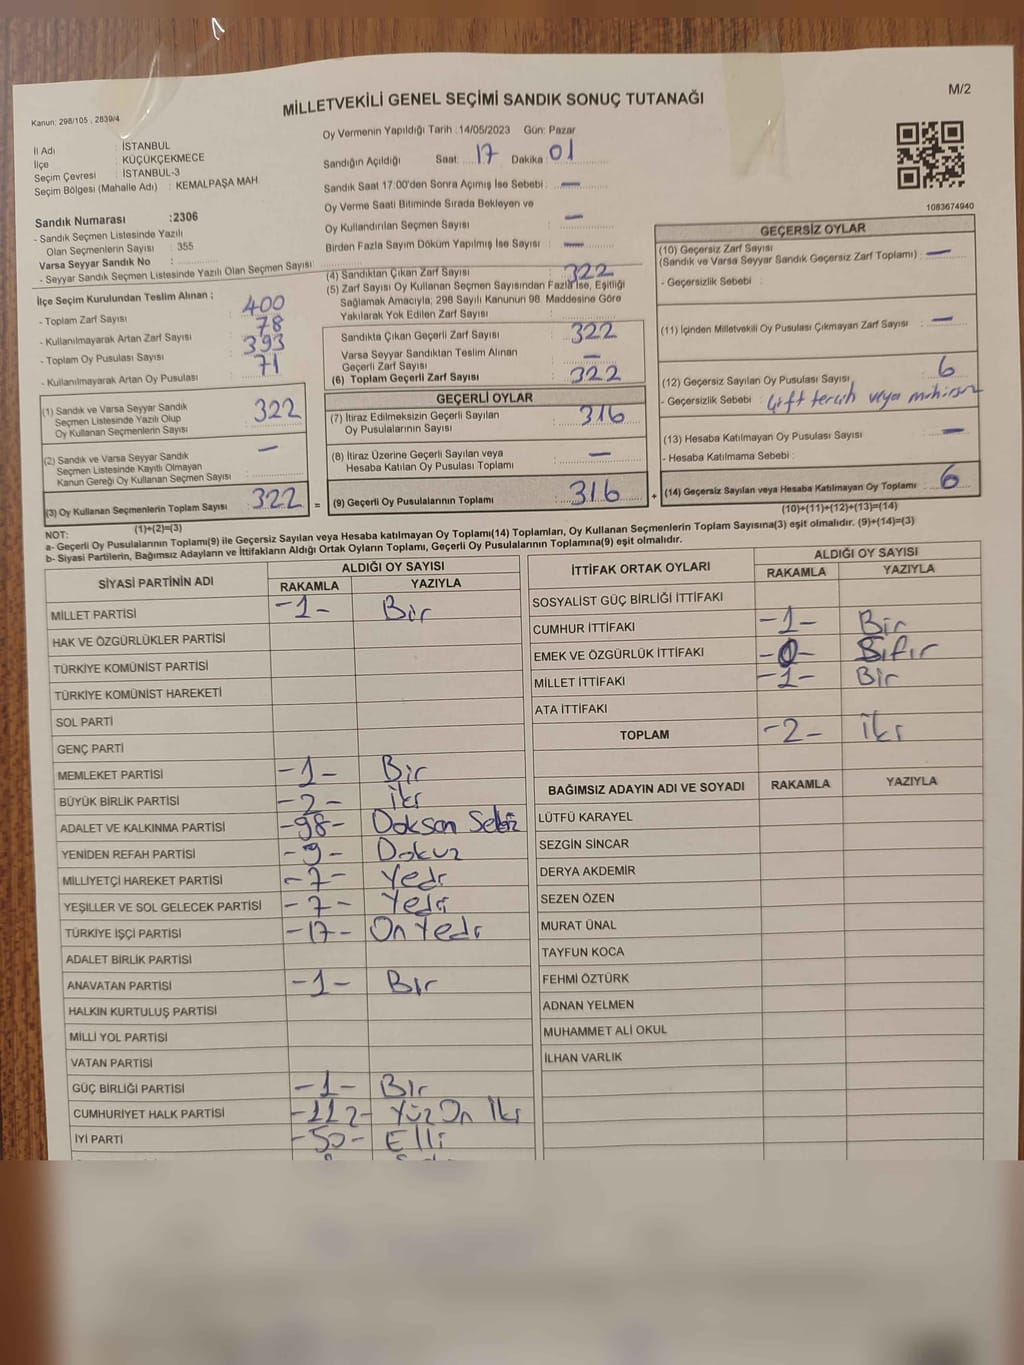 M/2
MİLLETVEKİLİ GENEL SEÇİMİ SANDIK SONUÇ TUTANAĞI
Kanun: 298/105 , 2839/4
İl Adı : İSTANBUL
İlçe : KÜÇÜKÇEKMECE
Seçim Çevresi : İSTANBUL-3
Seçim Bölgesi (Mahalle Adı) : KEMALPAŞA MAH.
Sandık Numarası :2306
- Sandık Seçmen Listesinde Yazılı
Olan Seçmenlerin Sayısı : 355
Varsa Seyyar Sandık No :
- Seyyar Sandık Seçmen Listesinde Yazılı Olan Seçmen Sayısı :
Oy Vermenin Yapıldığı Tarih :14/05/2023 Gün: Pazar
Sandığın Açıldığı Saat: 17 Dakika: 01
Sandık Saat 17:00'den Sonra Açımış İse Sebebi : —
Oy Verme Saati Bitiminde Sırada Bekleyen ve
Oy Kullandırılan Seçmen Sayısı : —
Birden Fazla Sayım Döküm Yapılmış İse Sayısı : —
1083674940
İlçe Seçim Kurulundan Teslim Alınan :
- Toplam Zarf Sayısı : 400
- Kullanılmayarak Artan Zarf Sayısı : 78
- Toplam Oy Pusulası Sayısı : 393
- Kullanılmayarak Artan Oy Pusulası : 71
(1) Sandık ve Varsa Seyyar Sandık
Seçmen Listesinde Yazılı Olup
Oy Kullanan Seçmenlerin Sayısı : 322
(2) Sandık ve Varsa Seyyar Sandık
Seçmen Listesinde Kayıtlı Olmayan
Kanun Gereği Oy Kullanan Seçmen Sayısı : —
(3) Oy Kullanan Seçmenlerin Toplam Sayısı : 322
(1)+(2)=(3)
(4) Sandıktan Çıkan Zarf Sayısı : 322
(5) Zarf Sayısı Oy Kullanan Seçmen Sayısından Fazla İse, Eşitliği
Sağlamak Amacıyla, 298 Sayılı Kanunun 98. Maddesine Göre
Yakılarak Yok Edilen Zarf Sayısı :
Sandıkta Çıkan Geçerli Zarf Sayısı : 322
Varsa Seyyar Sandıktan Teslim Alınan
Geçerli Zarf Sayısı : —
(6) Toplam Geçerli Zarf Sayısı : 322
GEÇERLİ OYLAR
(7) İtiraz Edilmeksizin Geçerli Sayılan
Oy Pusulalarının Sayısı : 316
(8) İtiraz Üzerine Geçerli Sayılan veya
Hesaba Katılan Oy Pusulası Toplamı : —
= (9) Geçerli Oy Pusulalarının Toplamı : 316
GEÇERSİZ OYLAR
(10) Geçersiz Zarf Sayısı
(Sandık ve Varsa Seyyar Sandık Geçersiz Zarf Toplamı) : —
- Geçersizlik Sebebi :
(11) İçinden Milletvekili Oy Pusulası Çıkmayan Zarf Sayısı : —
(12) Geçersiz Sayılan Oy Pusulası Sayısı : 6
- Geçersizlik Sebebi : Çift tercih veya mühürsüz
(13) Hesaba Katılmayan Oy Pusulası Sayısı : —
- Hesaba Katılmama Sebebi :
+ (14) Geçersiz Sayılan veya Hesaba Katılmayan Oy Toplamı : 6
(10)+(11)+(12)+(13)=(14)
NOT:
a- Geçerli Oy Pusulalarının Toplamı(9) ile Geçersiz Sayılan veya Hesaba katılmayan Oy Toplamı(14) Toplamları, Oy Kullanan Seçmenlerin Toplam Sayısına(3) eşit olmalıdır. (9)+(14)=(3)
b- Siyasi Partilerin, Bağımsız Adayların ve İttifakların Aldığı Ortak Oyların Toplamı, Geçerli Oy Pusulalarının Toplamına(9) eşit olmalıdır.
SİYASİ PARTİNİN ADI ALDIĞI OY SAYISI
RAKAMLA YAZIYLA
MİLLET PARTİSİ -1- Bir
HAK VE ÖZGÜRLÜKLER PARTİSİ
TÜRKİYE KOMÜNİST PARTİSİ
TÜRKİYE KOMÜNİST HAREKETİ
SOL PARTİ
GENÇ PARTİ
MEMLEKET PARTİSİ -1- Bir
BÜYÜK BİRLİK PARTİSİ -2- İki
ADALET VE KALKINMA PARTİSİ -98- Doksan Sekiz
YENİDEN REFAH PARTİSİ -9- Dokuz
MİLLİYETÇİ HAREKET PARTİSİ -7- Yedi
YEŞİLLER VE SOL GELECEK PARTİSİ -7- Yedi
TÜRKİYE İŞÇİ PARTİSİ -17- On Yedi
ADALET BİRLİK PARTİSİ
ANAVATAN PARTİSİ -1- Bir
HALKIN KURTULUŞ PARTİSİ
MİLLİ YOL PARTİSİ
VATAN PARTİSİ
GÜÇ BİRLİĞİ PARTİSİ -1- Bir
CUMHURİYET HALK PARTİSİ -112- Yüz On İki
İYİ PARTİ -50- Elli
İTTİFAK ORTAK OYLARI ALDIĞI OY SAYISI
RAKAMLA YAZIYLA
SOSYALİST GÜÇ BİRLİĞİ İTTİFAKI
CUMHUR İTTİFAKI -1- Bir
EMEK VE ÖZGÜRLÜK İTTİFAKI -0- Sıfır
MİLLET İTTİFAKI -1- Bir
ATA İTTİFAKI
TOPLAM -2- İki
BAĞIMSIZ ADAYIN ADI VE SOYADI RAKAMLA YAZIYLA
LÜTFÜ KARAYEL
SEZGİN SİNCAR
DERYA AKDEMİR
SEZEN ÖZEN
MURAT ÜNAL
TAYFUN KOCA
FEHMİ ÖZTÜRK
ADNAN YELMEN
MUHAMMET ALİ OKUL
İLHAN VARLIK